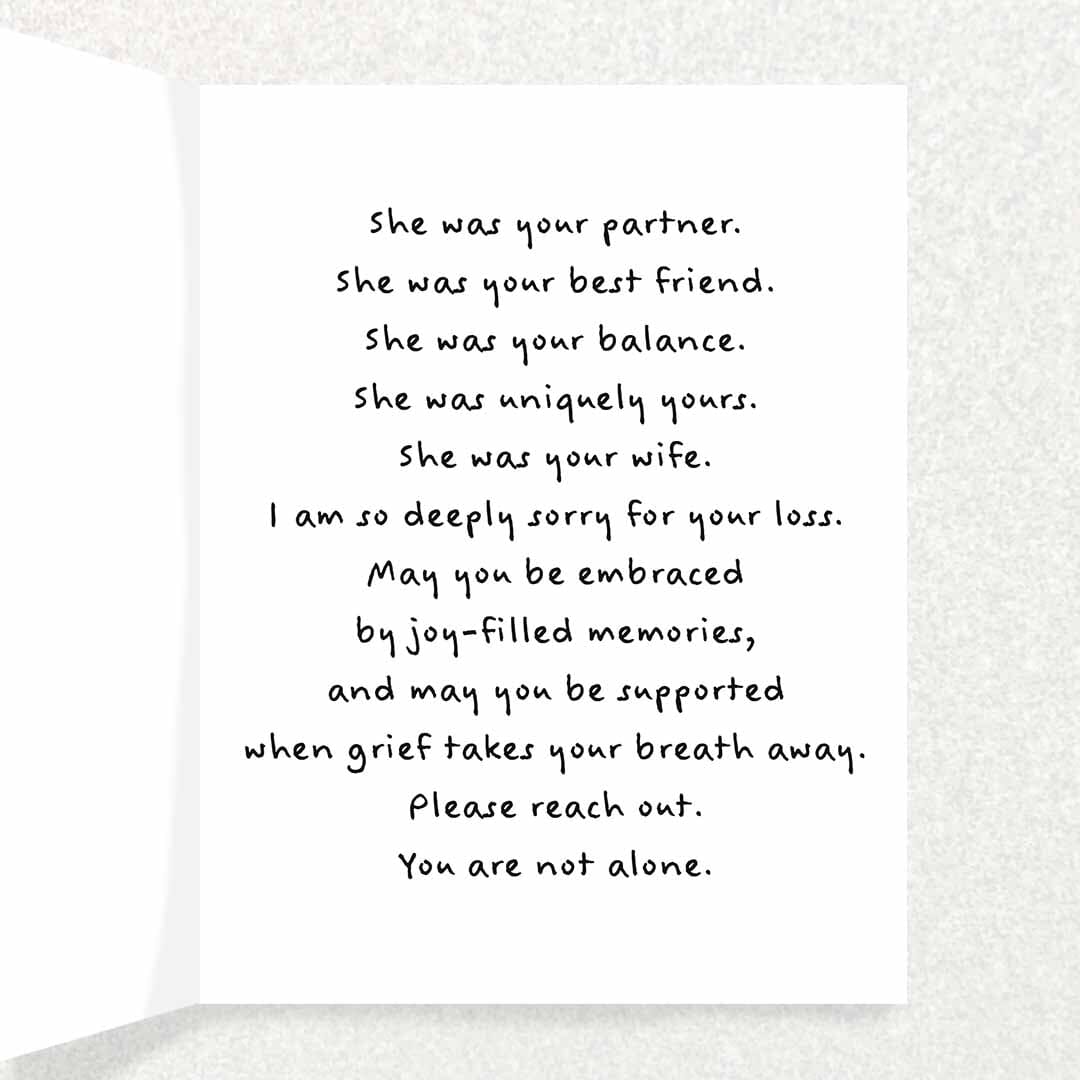 She was your partner.
She was your best friend.
She was your balance.
She was uniquely yours.
She was your wife.
I am so deeply sorry for your loss.
May you be embraced
by joy-filled memories,
and may you be supported
when grief takes your breath away.
Please reach out.
You are not alone.